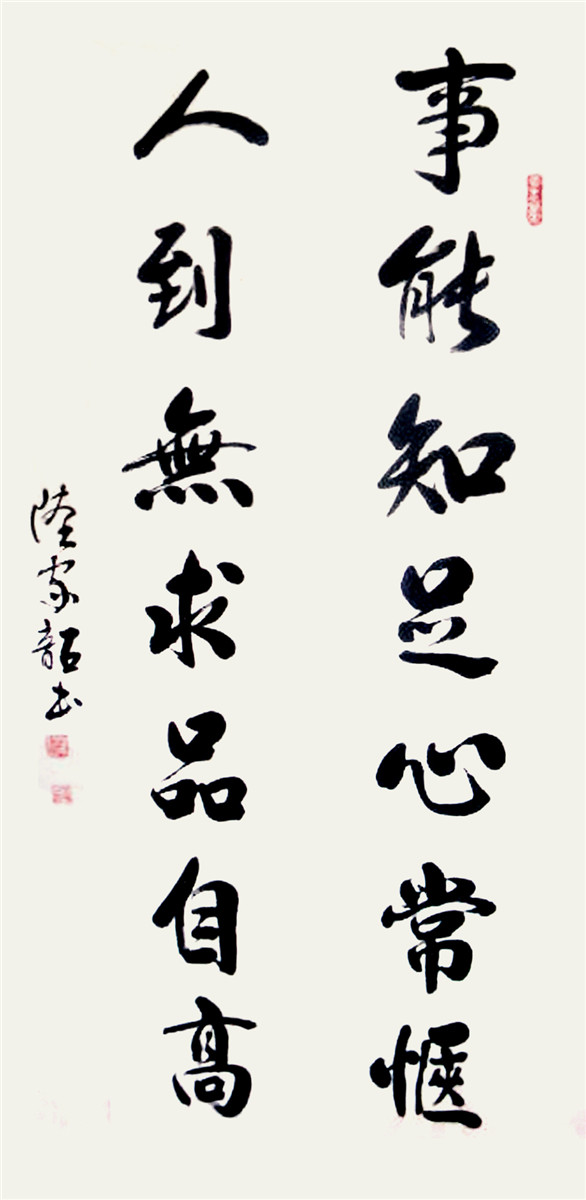 事能知足心常惬
人到無求品自高
陸家韶书